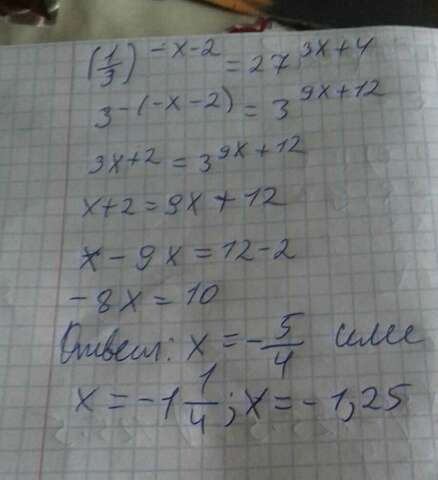 (1/3)^(-x-2) = 27^(3x+4)
3^(-(-x-2)) = 3^(9x+12)
3x+2 = 3^(9x+12)
x+2 = 9x+12
x-9x = 12-2
-8x = 10
Ответ: x = -5/4 или
x = -1 1/4; x = -1,25